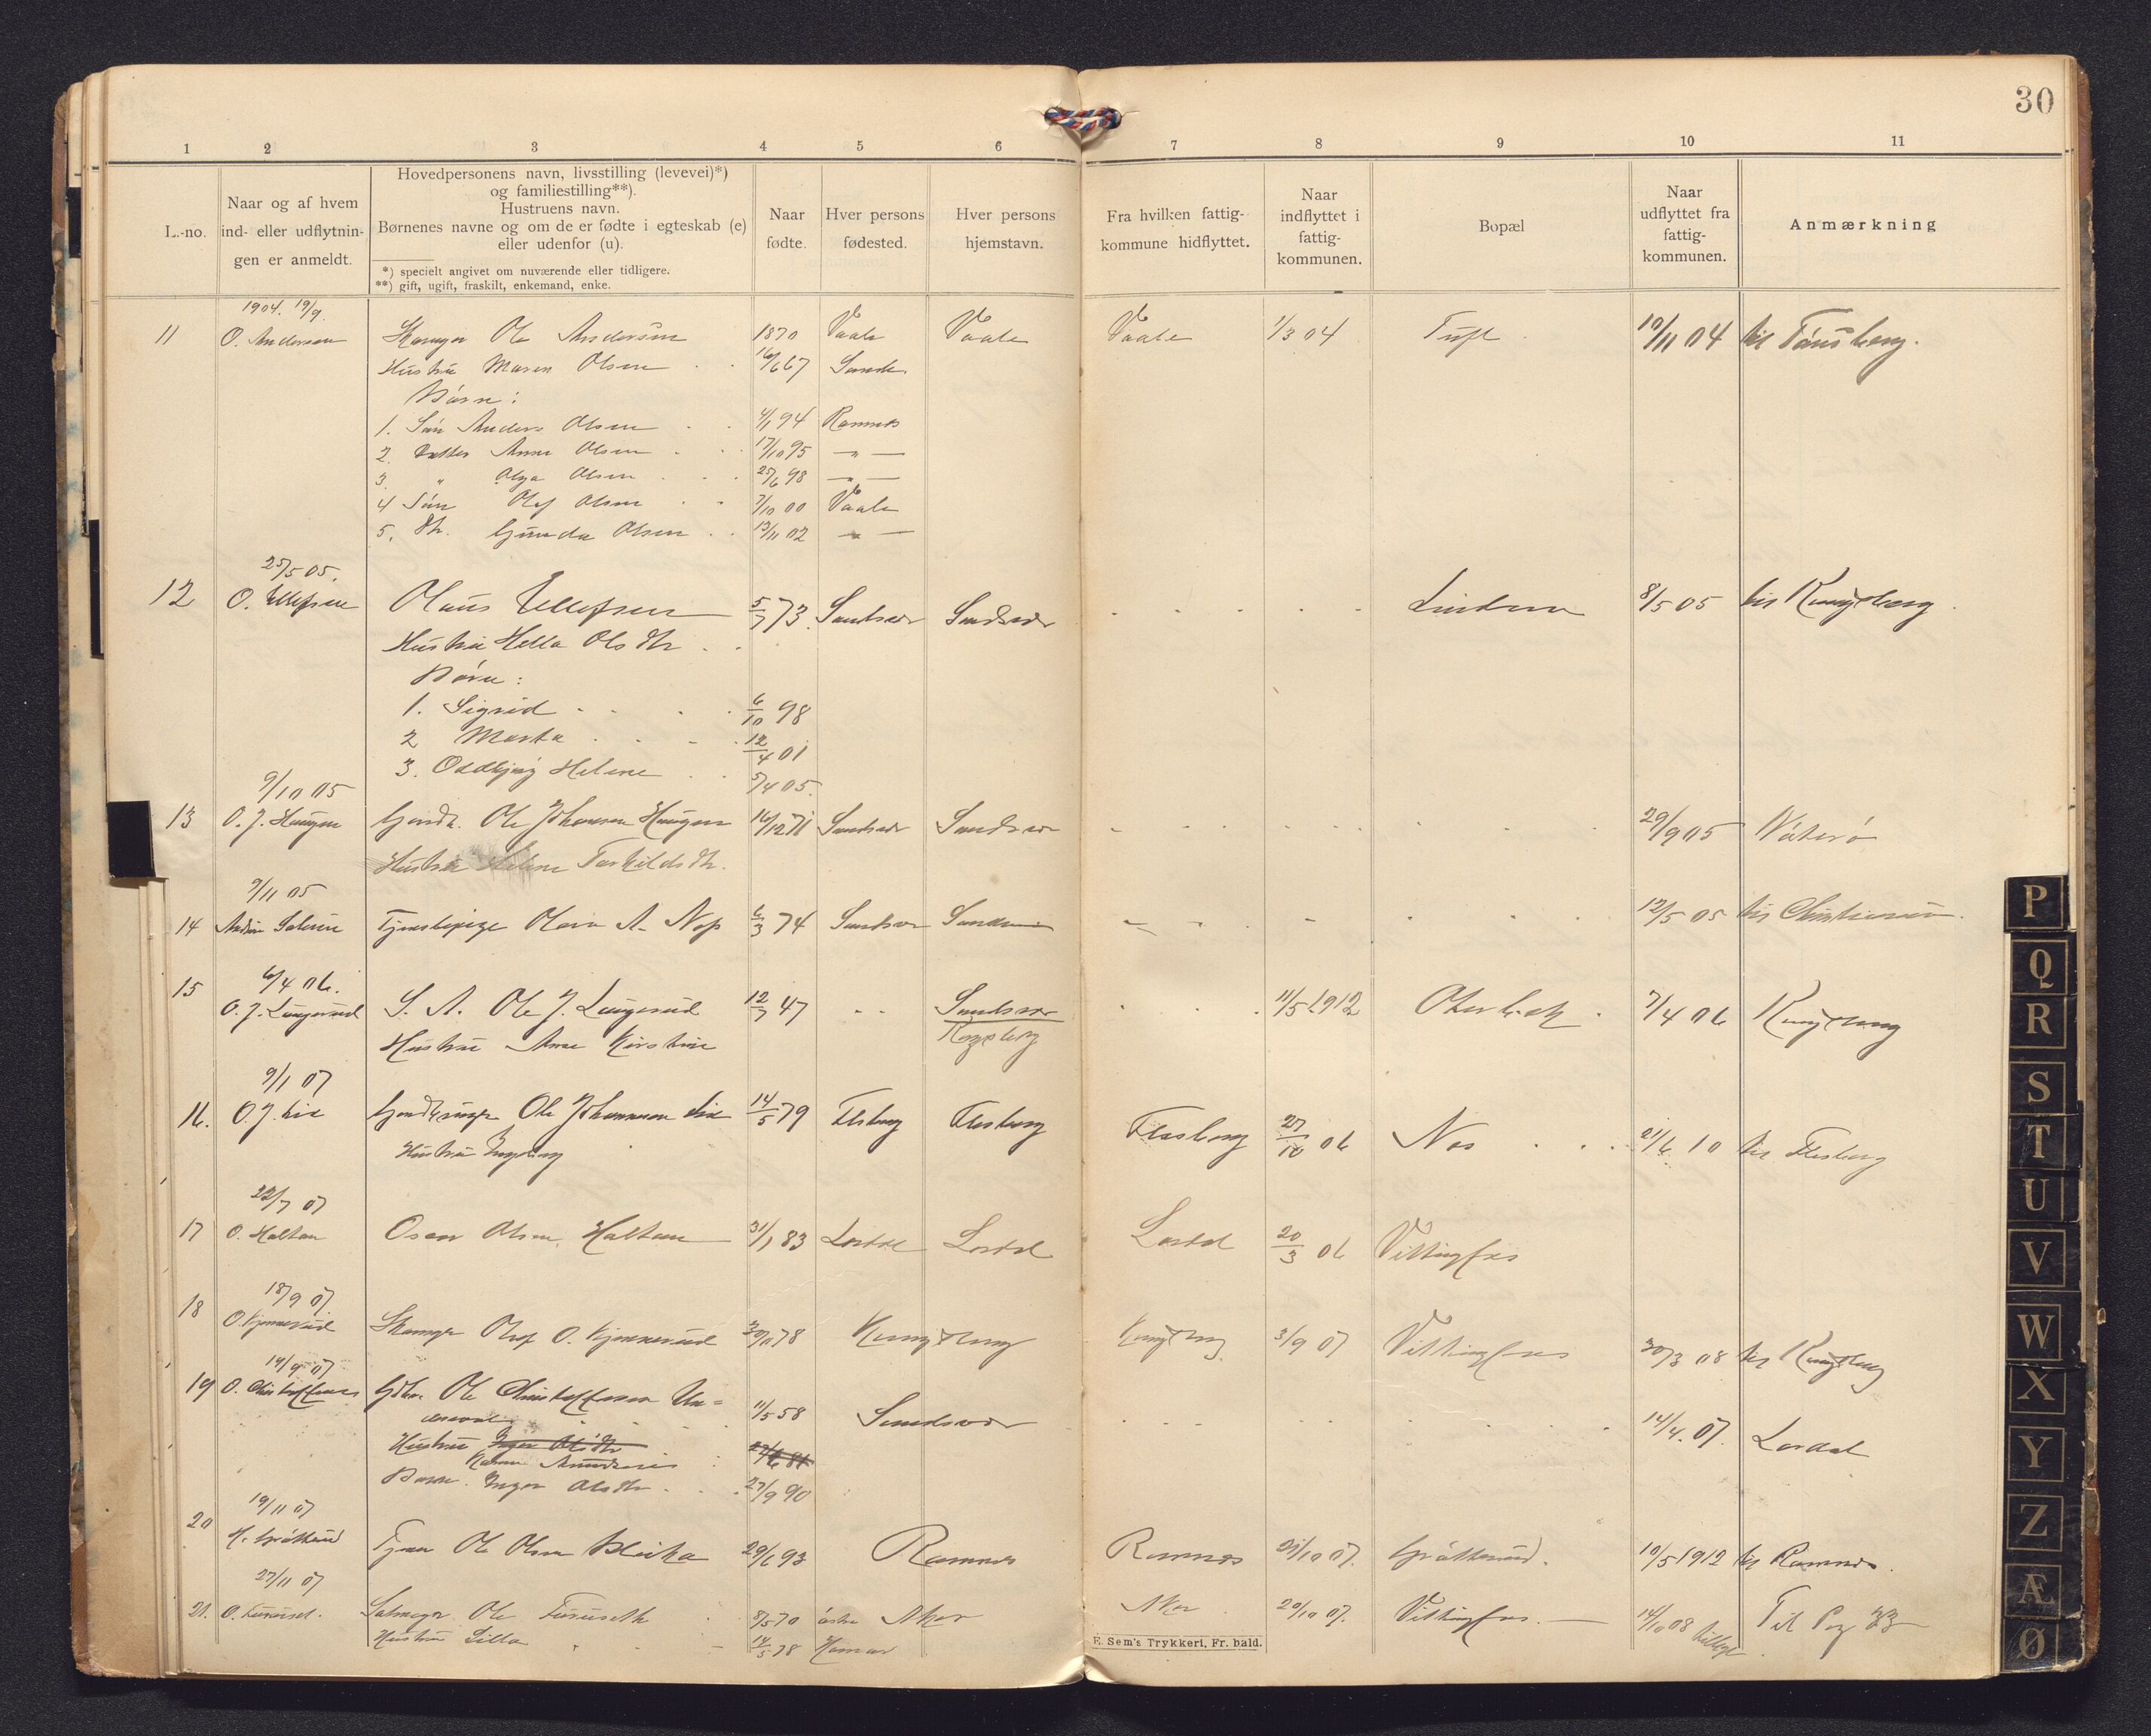 30
1 2 3 4 5 6 7 8 9 10 11
L.-no.
Naar og af hvem
ind- eller udflytnin-
gen er anmeldt.
Hovedpersonens navn, livsstilling (levevei)*)
og familiestilling**).
Hustruens navn.
Børnenes navne og om de er fødte i egteskab (e)
eller udenfor (u).
*) specielt angivet om nuværende eller tidligere.
**) gift, ugift, fraskilt, enkemand, enke.
Naar
fødte.
Hver persons
fødested.
Hver persons
hjemstavn.
Fra hvilken fattig-
kommune hidflyttet.
Naar
indflyttet i
fattig-
kommunen.
Bopæl
Naar
udflyttet fra
fattig-
kommunen.
Anmærkning
1904. 19/9.
11 O. Andersen Ole Andersen 1870 Vaale Vaale Vaale 1/3 04 Tuft 10/11 04 til Tønsberg.
Hustru Maren Olsen 16/6 67 Sande
Børn:
1. Søn Anders Olsen 4/1 94 Ramnes
2. Datter Anna Olsen 17/10 95 — " —
3. " Olga Olsen 25/6 98 — " —
4 Søn Olaf Olsen 7/10 00 Vaale
5. Dtr. Gunda Olsen 13/11 02 — " —
25/5 05.
12 O. Ellefsen Olaus Ellefsen 5/7 73. Sandsvær Sandsvær 8/5 05 til Kongsberg.
Hustru Hella Olsdtr
Børn:
1. Sigrid 6/10 98
2 Marta 12/4 01
3. Oddbjørg Helene 5/4 05.
9/10 05
13 O. J. Haugen Gaardb. Ole Johansen Haugen 16/12 71 Sandsvær Sandsvær 29/9 05 Nøterø
Hustru Helene Torkildsdtr.
9/11 05
14 Tjenestepige A. 6/3 74 Sandsvær Sandsvær 12/5 05 til Christiania.
6/4 06.
15 O. J. Laugerud S. A. Ole J. Laugerud 12/7 47 Sandsvær 11/5 1912 7/4 06 Kongsberg
Hustru Anne Kirstine Kongsberg
9/1 07
16. O. J. Lie Ole Johannesen Lie 14/5 79 Flesberg Flesberg Flesberg 27/10 06 21/6 10 til Flesberg
Hustru Ingeborg
22/7 07
17 O. Haltan Olsen Haltan 31/1 83 Lardal Lardal Lardal 20/3 06 Vittingfos
18/9 07.
18 O. Kjennerud Olaf O. Kjennerud 30/11 78 Kongsberg Kongsberg 3/9 07 Vittingfos 30/3 08 til Kongsberg
19/9 07
19 O. Christoffersen Gdbr. Ole Christoffersen 11/5 58 Sandsvær 14/4. 07. Lardal
Hustru Inger Olsdtr
Barn. Inger Olsdtr. 27/9 90
19/11 07
20 Tjener Ole Olsen Bleika 29/6 93 Ramnes Ramnes 21/10 07. 10/5 1912 til Ramnes.
27/11 07
21. O. Furuset. Ole Furuseth 8/5 70 østre Aker Aker 20/10 07. Vittingfos. 14/10 08 Til Pag 33
Hustru Lilla 14/5 78 Hamar
E. Sem's Trykkeri, Fr. hald.
P
Q
R
S
T
U
V
W
X
Y
Z
Æ
Ø